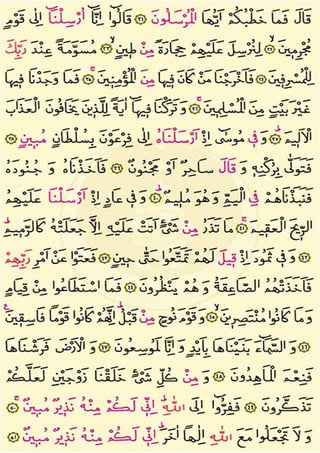 قَالَ فَمَا خَطْبُكُمْ اَيُّهَا الْمُرْسَلُونَ ﴿٣١﴾ قَالُٓوا اِنَّٓا اُرْسِلْنَٓا اِلٰى قَوْمٍ
مُجْرِمِينَۙ ﴿٣٢﴾ لِنُرْسِلَ عَلَيْهِمْ حِجَارَةً مِنْ طِينٍۙ ﴿٣٣﴾ مُسَوَّمَةً عِنْدَ رَبِّكَ
لِلْمُسْرِفِينَ ﴿٣٤﴾ فَاَخْرَجْنَا مَنْ كَانَ فِيهَا مِنَ الْمُؤْمِنِينَۚ ﴿٣٥﴾ فَمَا وَجَدْنَا فِيهَا
غَيْرَ بَيْتٍ مِنَ الْمُسْلِمِينَۚ ﴿٣٦﴾ وَتَرَكْنَا فِيهَٓا اٰيَةً لِلَّذِينَ يَخَافُونَ الْعَذَابَ
الْاَلِيمَۜ ﴿٣٧﴾ وَفِى مُوسٰٓى اِذْ اَرْسَلْنَاهُ اِلٰى فِرْعَوْنَ بِسُلْطَانٍ مُبِينٍ ﴿٣٨﴾
فَتَوَلّٰى بِرُكْنِهِ وَقَالَ سَاحِرٌ اَوْ مَجْنُونٌ ﴿٣٩﴾ فَاَخَذْنَاهُ وَجُنُودَهُ
فَنَبَذْنَاهُمْ فِى الْيَمِّ وَهُوَ مُلِيمٌۜ ﴿٤٠﴾ وَفِى عَادٍ اِذْ اَرْسَلْنَا عَلَيْهِمُ
الرِّيحَ الْعَقِيمَۚ ﴿٤١﴾ مَا تَذَرُ مِنْ شَىْءٍ اَتَتْ عَلَيْهِ اِلَّا جَعَلَتْهُ كَالرَّمِيمِۜ
﴿٤٢﴾ وَفِى ثَمُودَ اِذْ قِيلَ لَهُمْ تَمَتَّعُوا حَتّٰى حِينٍ ﴿٤٣﴾ فَعَتَوْا عَنْ اَمْرِ رَبِّهِمْ
فَاَخَذَتْهُمُ الصَّاعِقَةُ وَهُمْ يَنْظُرُونَ ﴿٤٤﴾ فَمَا اسْتَطَاعُوا مِنْ قِيَامٍ
وَمَا كَانُوا مُنْتَصِرِينَۙ ﴿٤٥﴾ وَقَوْمَ نُوحٍ مِنْ قَبْلُۜ اِنَّهُمْ كَانُوا قَوْمًا فَاسِقِينَ۟
﴿٤٦﴾ وَالسَّمَٓاءَ بَنَيْنَاهَا بِاَيْدٍ وَاِنَّا لَمُوسِعُونَ ﴿٤٧﴾ وَالْاَرْضَ فَرَشْنَاهَا
فَنِعْمَ الْمَاهِدُونَ ﴿٤٨﴾ وَمِنْ كُلِّ شَىْءٍ خَلَقْنَا زَوْجَيْنِ لَعَلَّكُمْ
تَذَكَّرُونَ ﴿٤٩﴾ فَفِرُّٓوا اِلَى اللّٰهِۜ اِنِّى لَكُمْ مِنْهُ نَذِيرٌ مُبِينٌۚ ﴿٥٠﴾
وَلَا تَجْعَلُوا مَعَ اللّٰهِ اِلٰهًا اٰخَرَۜ اِنِّى لَكُمْ مِنْهُ نَذِيرٌ مُبِينٌۚ ﴿٥١﴾